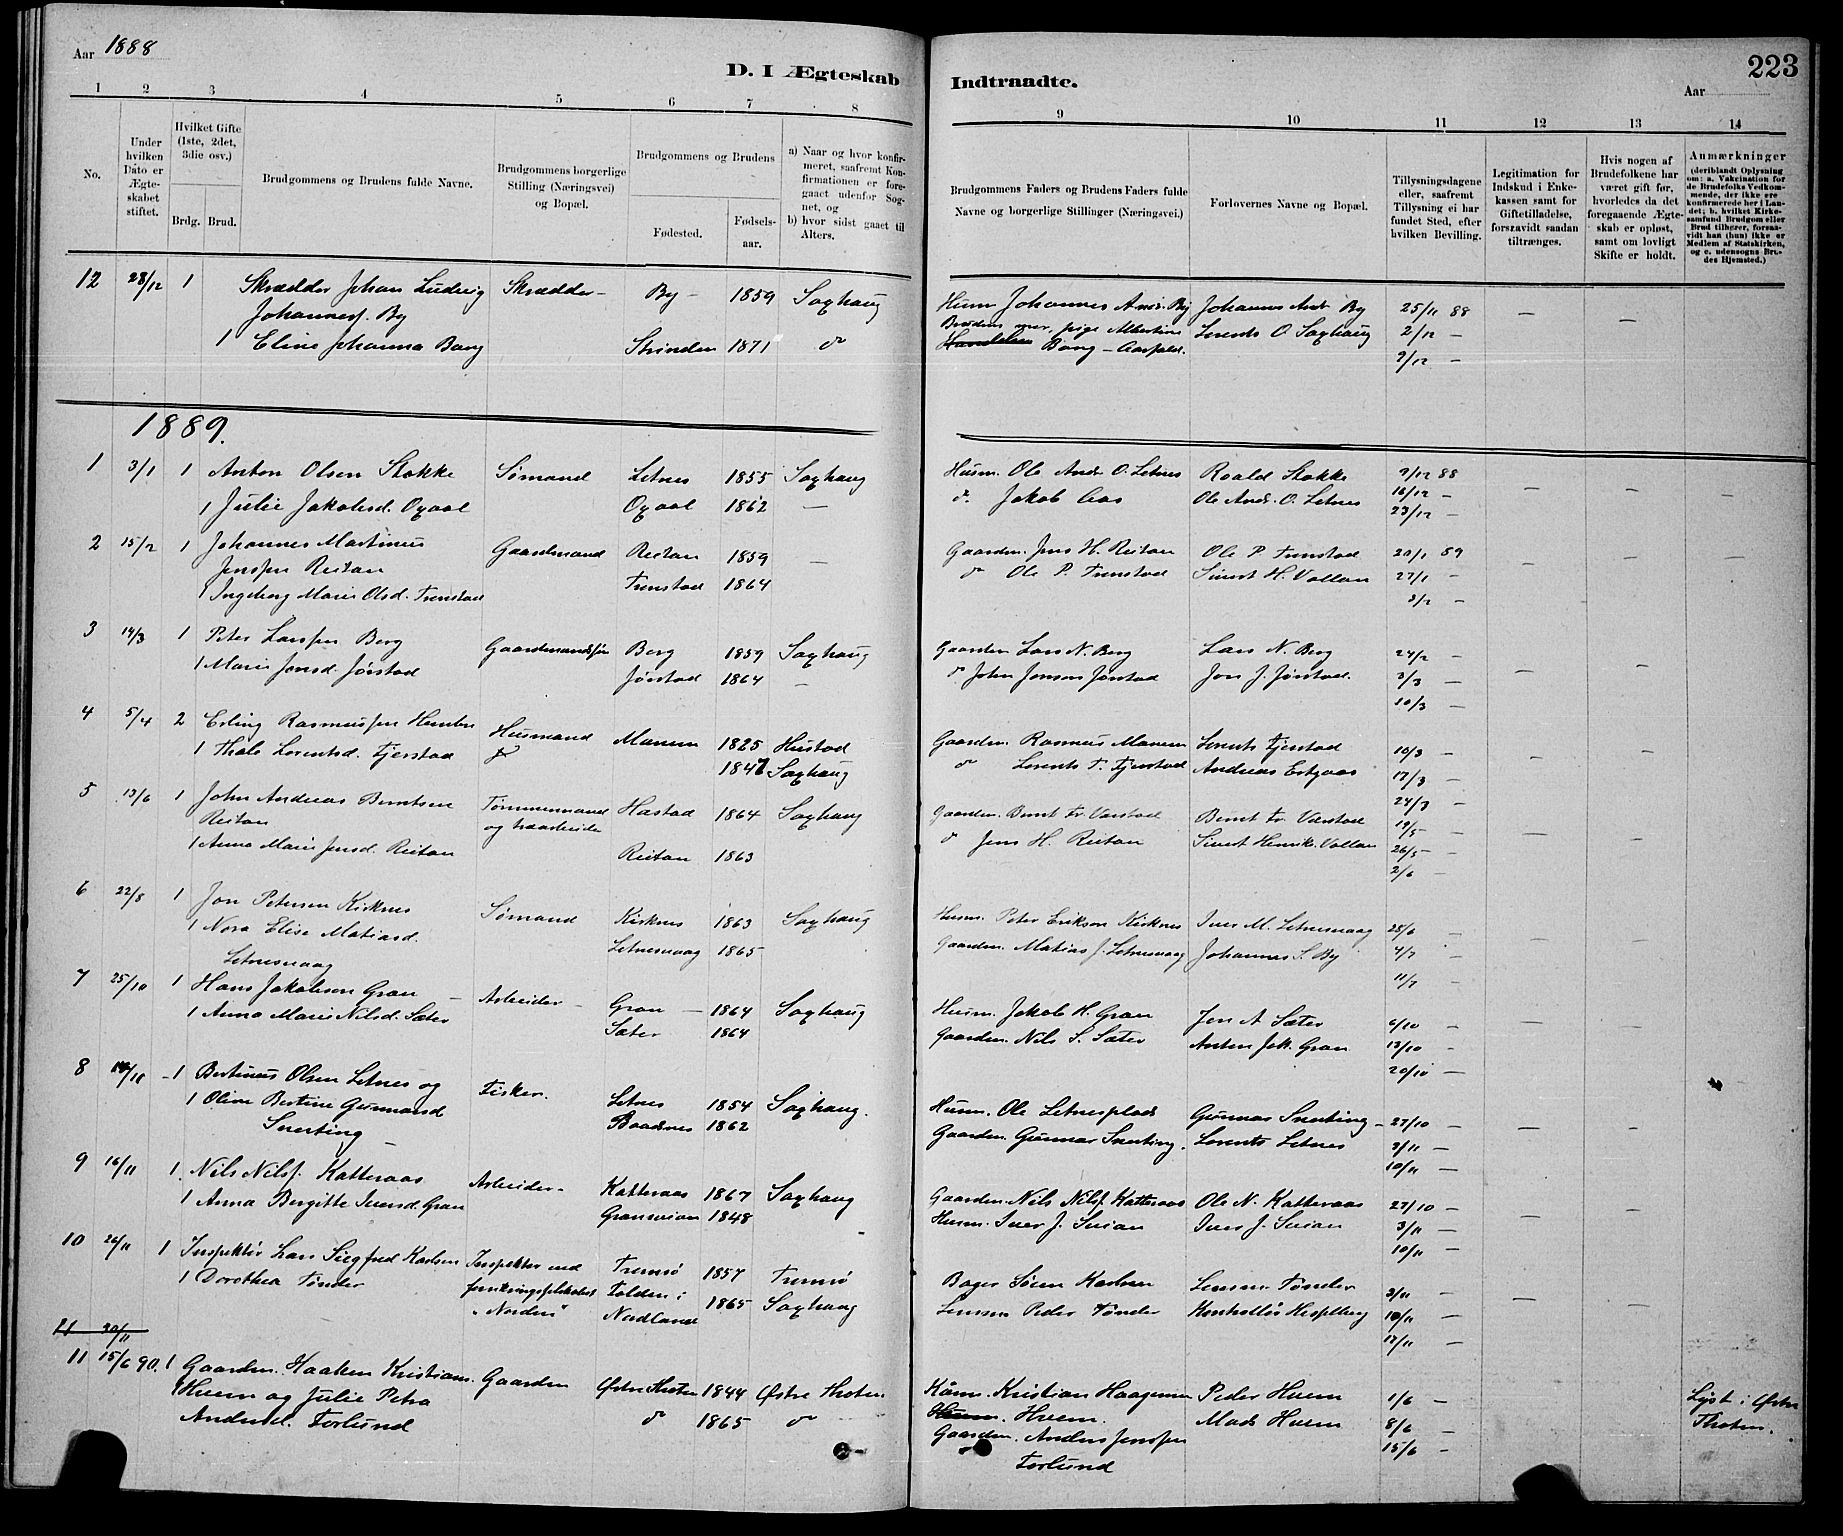 Aar 1888
D. I Ægteskab
Indtraadte.
223
Aar
1 2 3 4 5 6 7 8 9 10 11 12 13 14
No.
Under hvilken Dato er Ægteskabet stiftet.
Hvilket Gifte (1ste, 2det, 3die osv.)
Brdg. Brud.
Brudgommens og Brudens fulde Navne.
Brudgommens borgerlige Stilling (Næringsvei) og Bopæl.
Brudgommens og Brudens
Fødested.
Fødsels-aar.
a) Naar og hvor konfirmeret, saafremt Konfirmationen er foregaaet udenfor Sognet, og
b) hvor sidst gaaet til Alters.
Brudgommens Faders og Brudens Faders fulde Navne og borgerlige Stillinger (Næringsvei.)
Forlovernes Navne og Bopæl.
Tillysningsdagene eller, saafremt Tillysning ei har fundet Sted, efter hvilken Bevilling.
Legitimation for Indskud i Enkekassen samt for Giftetilladelse, forsaavidt saadan tiltrænges.
Hvis nogen af Brudefolkene har været gift før, hvorledes da det foregaaende Ægteskab er opløst, samt om lovligt Skifte er holdt.
Anmærkninger
(deriblandt Oplysning om: a. Vakcination for de Brudefolks Vedkommende, der ikke ere konfirmerede her i Landet; b. hvilket Kirkesamfund Brudgom eller Brud tilhører, forsaavidt han (hun) ikke er Medlem af Statskirken, og c. udensogns Brudes Hjemsted.)
12 28/12 1 Skrædder Johan Ludvig Skrædder- By- 1859 Saxhaug Husm Johannes Andr. By Johannes Andr By 25/11 88 — —
Johannesf. By Brudens mor. pige Albertine 2/12 —
1 Eline Johanna Bang Strinden 1871 do Bang - Aasfald. Lorents O Saxhaug 9/12 —
1889.
1 3/1 1 Anton Olsen Stokke Sømand Letnes 1855 Saxhaug Husm. Ole Andr. O. Letnes Roald Stokke 9/12 88 — — —
1 Julie Jakobsd. Oxaal Oxaal 1862 — do Jakob Aas Ole Andr. O. Letnes 16/12 —
23/12 —
2 15/2 1 Johannes Martinus Gaardmand Reitan 1859 — Gaardm. Jens H. Reitan Ole P. Tunstad 20/1 89 — — —
Jenssen Reitan do Ole P. Tunstad Sivert H. Vollan 27/1 —
1 Ingeborg Marie Olsd. Tunstad Tunstad 1864 3/2 —
3 14/3 1 Peter Larssen Berg Gaardmandssøn Berg 1859 Saxhaug Gaardm Lars N. Berg Lars N. Berg 24/2 — — —
1 Marie Jonsd. Jørstad Jørstad 1864 — do John Jonsen Jørstad Jon J. Jørstad. 3/3 —
10/3 —
4 5/4 2 Erling Rasmussen Husmand Manem 1825 Hustad Gaardm. Rasmus Manem Lorents Fjerstad 10/3 — — —
1 Thale Lorentsd. Fjerstad 1847 Saxhaug do Lorents T. Fjerstad Andreas Estgaas 17/3 —
24/3 —
5 13/6 1 John Andreas Berntsen Tømmermand Hastad 1864 Saxhaug Gaardm. Bernt Fr. Værstad Bernt Fr. Værstad 19/5 — — —
Reitan og træarbeider
1 Anna Marie Jensd. Reitan Reitan 1863 do Jens H. Reitan Sivert Henrik. Vollan 26/5 —
2/6 —
6 22/8 1 Jon Petersen Kirknes Sømand Kirknes 1863 Saxhaug Husm. Peter Eriksen Kirknes Iver M. Letnesvaag 28/6 — — —
1 Nora Elise Matiasd. Letnesvaag 1865 Gaardm. Matias J. Letnesvaag Johannes S. By 4/7 —
Letnesvaag 11/7 —
7 25/10 1 Hans Jakobsen Gran — Arbeider — Gran — 1864 Saxhaug Husm. Jakob H. Gran Jon A Sæter 6/10 — — —
1 Anna Marie Nilsd. Sæter Sæter 1864 Gaardm. Nils S. Sæter Anton Jak. Gran 13/10 —
20/10 —
8 1 Bertinus Olsen Letnes og Fisker. Letnes 1854 Saxhaug. Husm. Ole Letnesplads Gunnar Snerting — 27/10 — — —
1 Oline Bertine Gunnarsd Baadsnes 1862 Gaardm. Gunnar Snerting. Lorents Letnes 3/11 —
Snerting — 10/11 —
9 16/11 1 Nils Nilsf. Katteraas Arbeider — Katteraas 1867 Saxhaug Gaardm. Nils Nilsf. Katteraas Ole N. Katteraas 27/10 — — —
1 Anna Bergitte Iversd. Gran Granseian 1848 Husm. Iver J. Seian Iver J. Seian 3/11 —
10/11 —
10 26/11 1 Inspektør Lars Siegfred Karlsen Inspektør ved Tromsø 1857 Tromsø Bager Søren Karlsen Lensm Tønder 3/11 — — —
1 Dorothea Tønder forsikringsselskabet Folden i 1865 Saxhaug Lensm Peder Tønder Kontrollør Hesselberg 10/11 —
"Norden" Nordland 17/11 —
11 30/11
11 15/6 90. 1 Gaardm. Haaken Kristians. Gaardm Østre Thoten 1844 Østre Thoten Kårm. Kristian Haagensen Peder Huem 1/6 — Lyst i Østre
1 Huem og Julie Petra do 1865 do Huem. Mads Huem 8/6 — Thoten.
Andersd. Forlund Gaardm. Anders Jenssen 15/6 —
Forlund